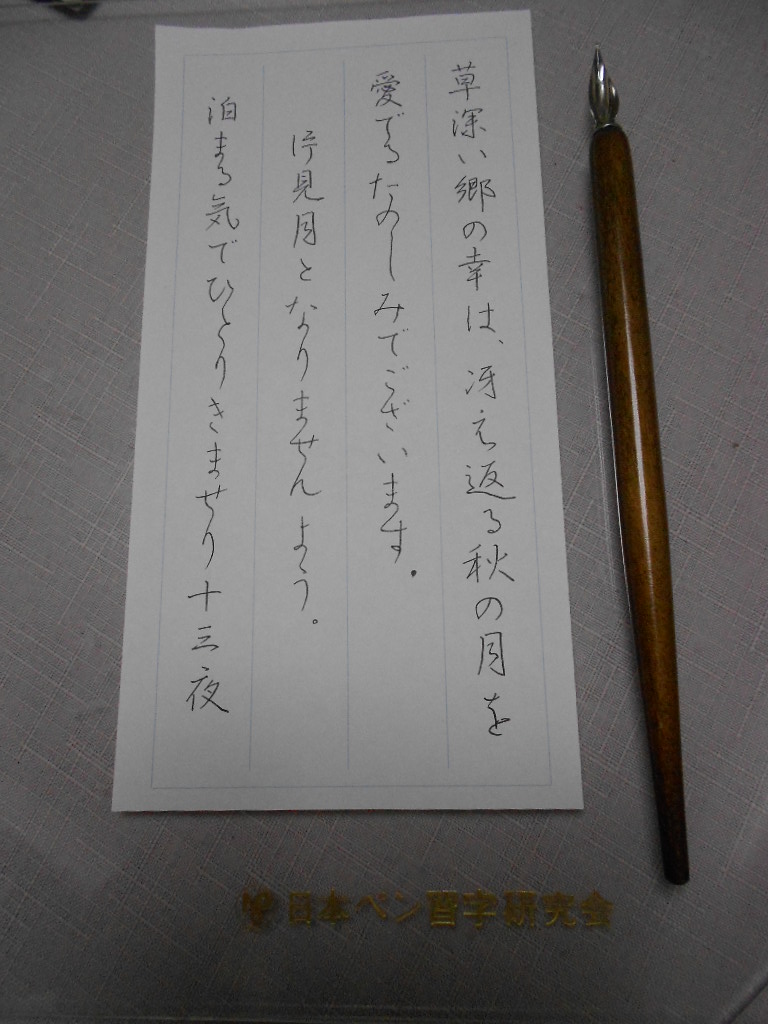 草深い郷の幸は、冴え返る秋の月を
愛でるたのしみでございます。
片見月となりませんよう。
泊まる気でひとりきませり十三夜
日本ペン習字研究会